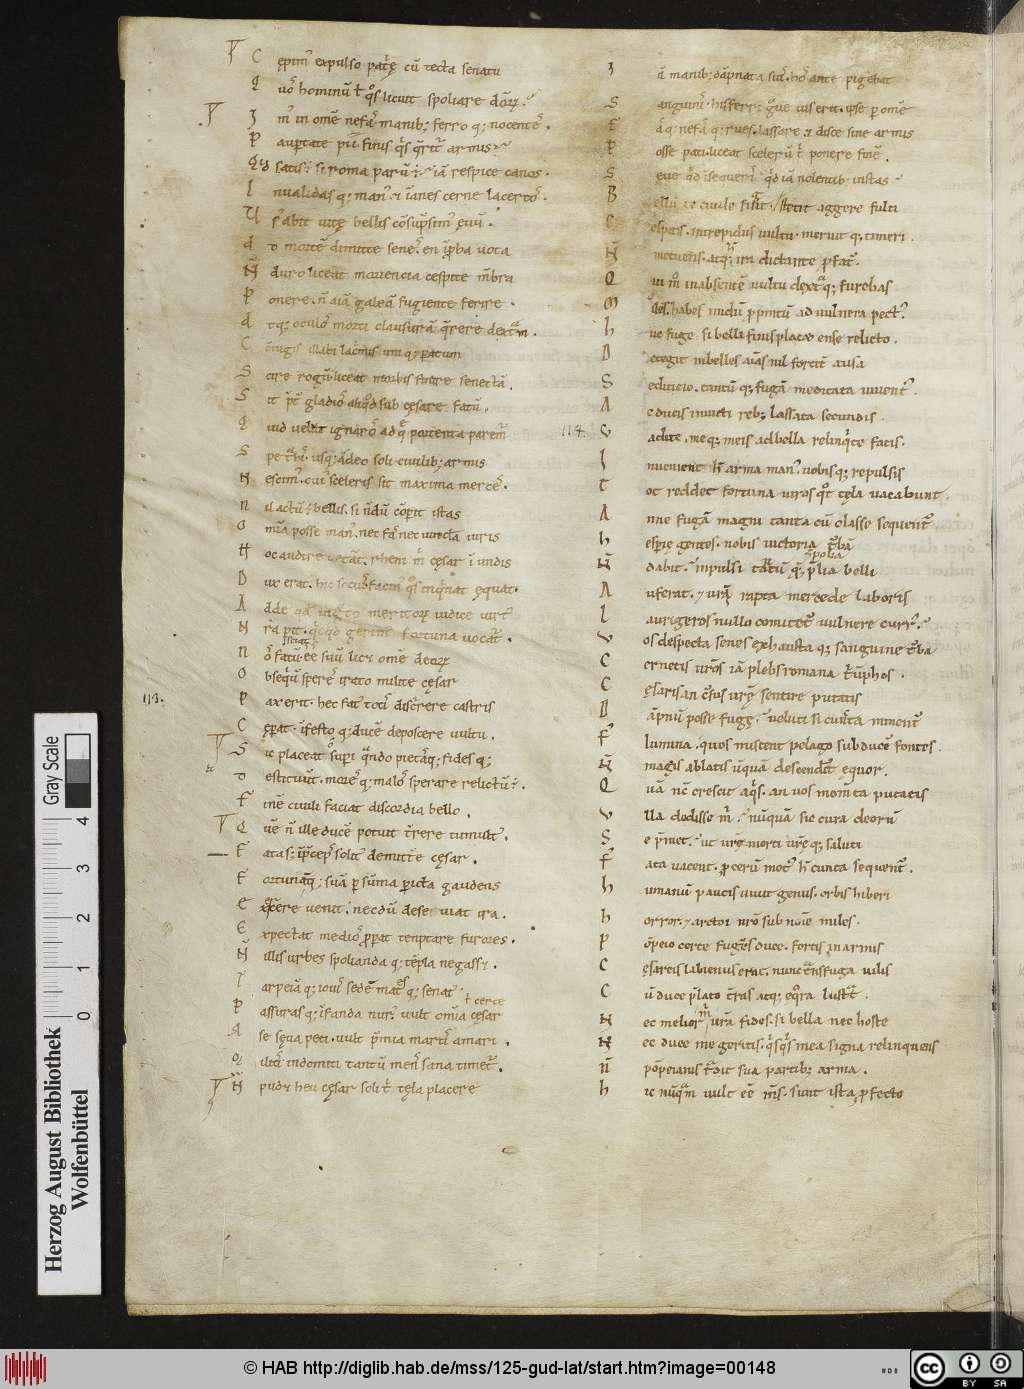 C ępim᷒ expulso patrię cū tecta senatu
Q uos hominū ł q̊s licuit spoliare dōꝝ.
I m᷒ in omē nefas manib; ferro q; nocentes.
P aup̄tate pii. finis q̇s q̄rit᷒ armis
Qd satis ÷ si roma parū ÷ iā respice canos.
I nualidas q; man᷒ & īanes cerne lacertos.
U s᷒ abiit uitę bellis cōsūpsim᷒ ęuū.
A d mortē dimitte senes. en īp̄ba uota
N̄ duro liceat moriencia cespite m̄bra
P onere. n̄ aīā galeā fugiente ferire.
A tq; oculos morti clausurā q̄rere dext̄m.
C ōiugis illabi lac̄mis uni q; paratum
S cire rogū. liceat morbis finire senectā.
S it p̄t gladios aliq̊d sub cęsare fatū.
Q uid uelut ignaros ad q̄ portenta paremur
S pe trahis. usq; adeo soli ciuilib; armis
N escim᷒ cui᷒ sceleris sit maxima merces.
N il actū ÷ bellis. si n̄dū cōperit istas
O mīa posse man᷒. nec fas nec uincla iuris
H oc audere uetāt. rheni m̄ cęsar ī undis
D ux erat. hic soci᷒ facin᷒ q̊s inq̇nat ęquat.
A dde qd ingrato meritoꝝ iudice uirt᷒
N r̄a pit. q̇cq̇d gerim᷒ fortuna uocat᷒.
N os fatū ēē suū licz omē deoꝝ
O bseq̇ū speres irato milite cęsar
P ax erit. hec fatus toti discurrere castris
C ęperat. īfesto q; ducē deposcere uultu.
S ic placeat supi q̄ndo pietas q; fides q;
D estituūt. mores q; malos sperare relictū ÷
F inē ciuili faciat discordia bello.
Q uē n̄ ille ducē potuit t̄rere tumult᷒.
F ata s; p̄cep̄s solit᷒ demittere cęsar.
F ortunāq; suā per sūma pericła gaudens
E xercere uenit. nec dū desęuiat ira.
E xpectat medios properat temptare furores.
N̄ illis urbes spolianda q; tēpla negass&.
T arpeiā q; iouis sedē matres q; senat᷒
ł certe
P assuras q; īfanda nur᷒. uult omīa cęsar
A se sęua peti. uult p̄mia martis amari.
M ilitis indomiti tantū mens sana timet᷒.
N̄ pud& heu cęsar soli t̄ bęlla placere
113.
I ā manib; dāpnata suis. hos ante pigebat
S anguinis. his ferri g̊ue uis erit. ipse per omē
F as q; nefas q; rues. lassare & disce sine armis
P osse pati. liceat scelerū t̄ ponere finē.
S eue q̇d īsequeris q̇d iā nolentib. instas
B ellū te ciuile fugit. stetit aggere fulti
C espitis. intrepidus uultu. meruit q; timeri.
N̄ metuens. atq; h᷒ ira dictante p̄fat᷒.
Q ui m̊ in absentē uultu dext̄q; furebas
M iles. habes nudū p̄mptū ad uulnera pect᷒.
H ic fuge si belli finis placet ense relicto.
D etegit inbelles aīas nil fortit᷒ ausa
S editicio. tantū q; fugā meditata iuuent᷒
A c ducis inuicti reb; lassata secundis.
114. V adite. me q; meis ad bella relinq̇te fatis.
I nuenient h̄ arma man᷒. uobis q; repulsis
T ot reddet fortuna uiros q̊t tęla uacabunt.
A nne fugā magni tanta cū classe sequent᷒
H esperię gentes. nobis uictoria t̄bā
spolia
N̄ dabit. īmpulsi tatū q; p̄lia belli
A uferat. & ur̄i rapta mercede laboris
L aurigeros nullo comitet᷒ uulnere curr᷒.
V os despecta senes exhausta q; sanguine t̄ba
C ernetis nr̄os iā plebs romana t̄ūphos.
C ęsaris an c̄sus ur̄ę sentire putatis
D āpnū posse fugę. ueluti si cuncta minent᷒
F lumina. quos miscent pelago subducē fontes.
N̄ magis ablatis ūquā descend&̄ equor.
Q uā nc̄ crescit aq̇s. an uos momēta putatis
V lla dedisse m̄. nūquā sic cura deorū
S e p̄met. ut ur̄ę morti ur̄ę q; saluti
F ata uacent. procerū mot᷒ h̄ cuncta sequent᷒.
H umanū paucis uiuit genus. orbis hiberi
H orror. & arctoi nr̄o sub noīe miles.
P ōpeio certe fuger&̄s duce. fortis in armis
C ęsareis labienus erat. nunc t̄nsfuga uilis
C ū duce p̄lato t̄ras atq; eq̊ra lustrat.
N ec melior m̄ ur̄a fides. si bella nec hoste
N ec duce me geritis. q̇sq̇s mea signa relinquens
N̄ pōpeianis t̄dit sua partib; arma.
H ic nūq̄m uult eē m̄s. sunt ista profecto
Herzog August Bibliothek
Wolfenbüttel
Gray Scale
0 1 2 3 4
© HAB http://diglib.hab.de/mss/125-gud-lat/start.htm?image=00148
CC BY SA